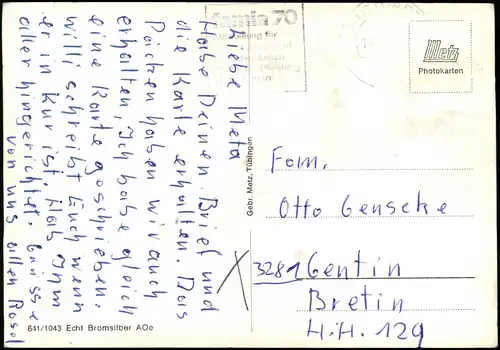 famia 70
Liebe Meta
Habe Deinen Brief und
die Karte erhalten. Das
Päcken haben wir auch
erhalten, Ich habe gleich
eine Karte geschrieben.
Willi schreibt Euch wenn
er in Kur ist. Hab Ihm
aller hingerichtet. Grüsse
von uns allen Rosel
641/1043 Echt Bromsilber AOe
Gebr. Metz, Tübingen
Metz
Photokarten
Fam.
Otto Genseke
3281 Gentin
Bretin
H.H. 129